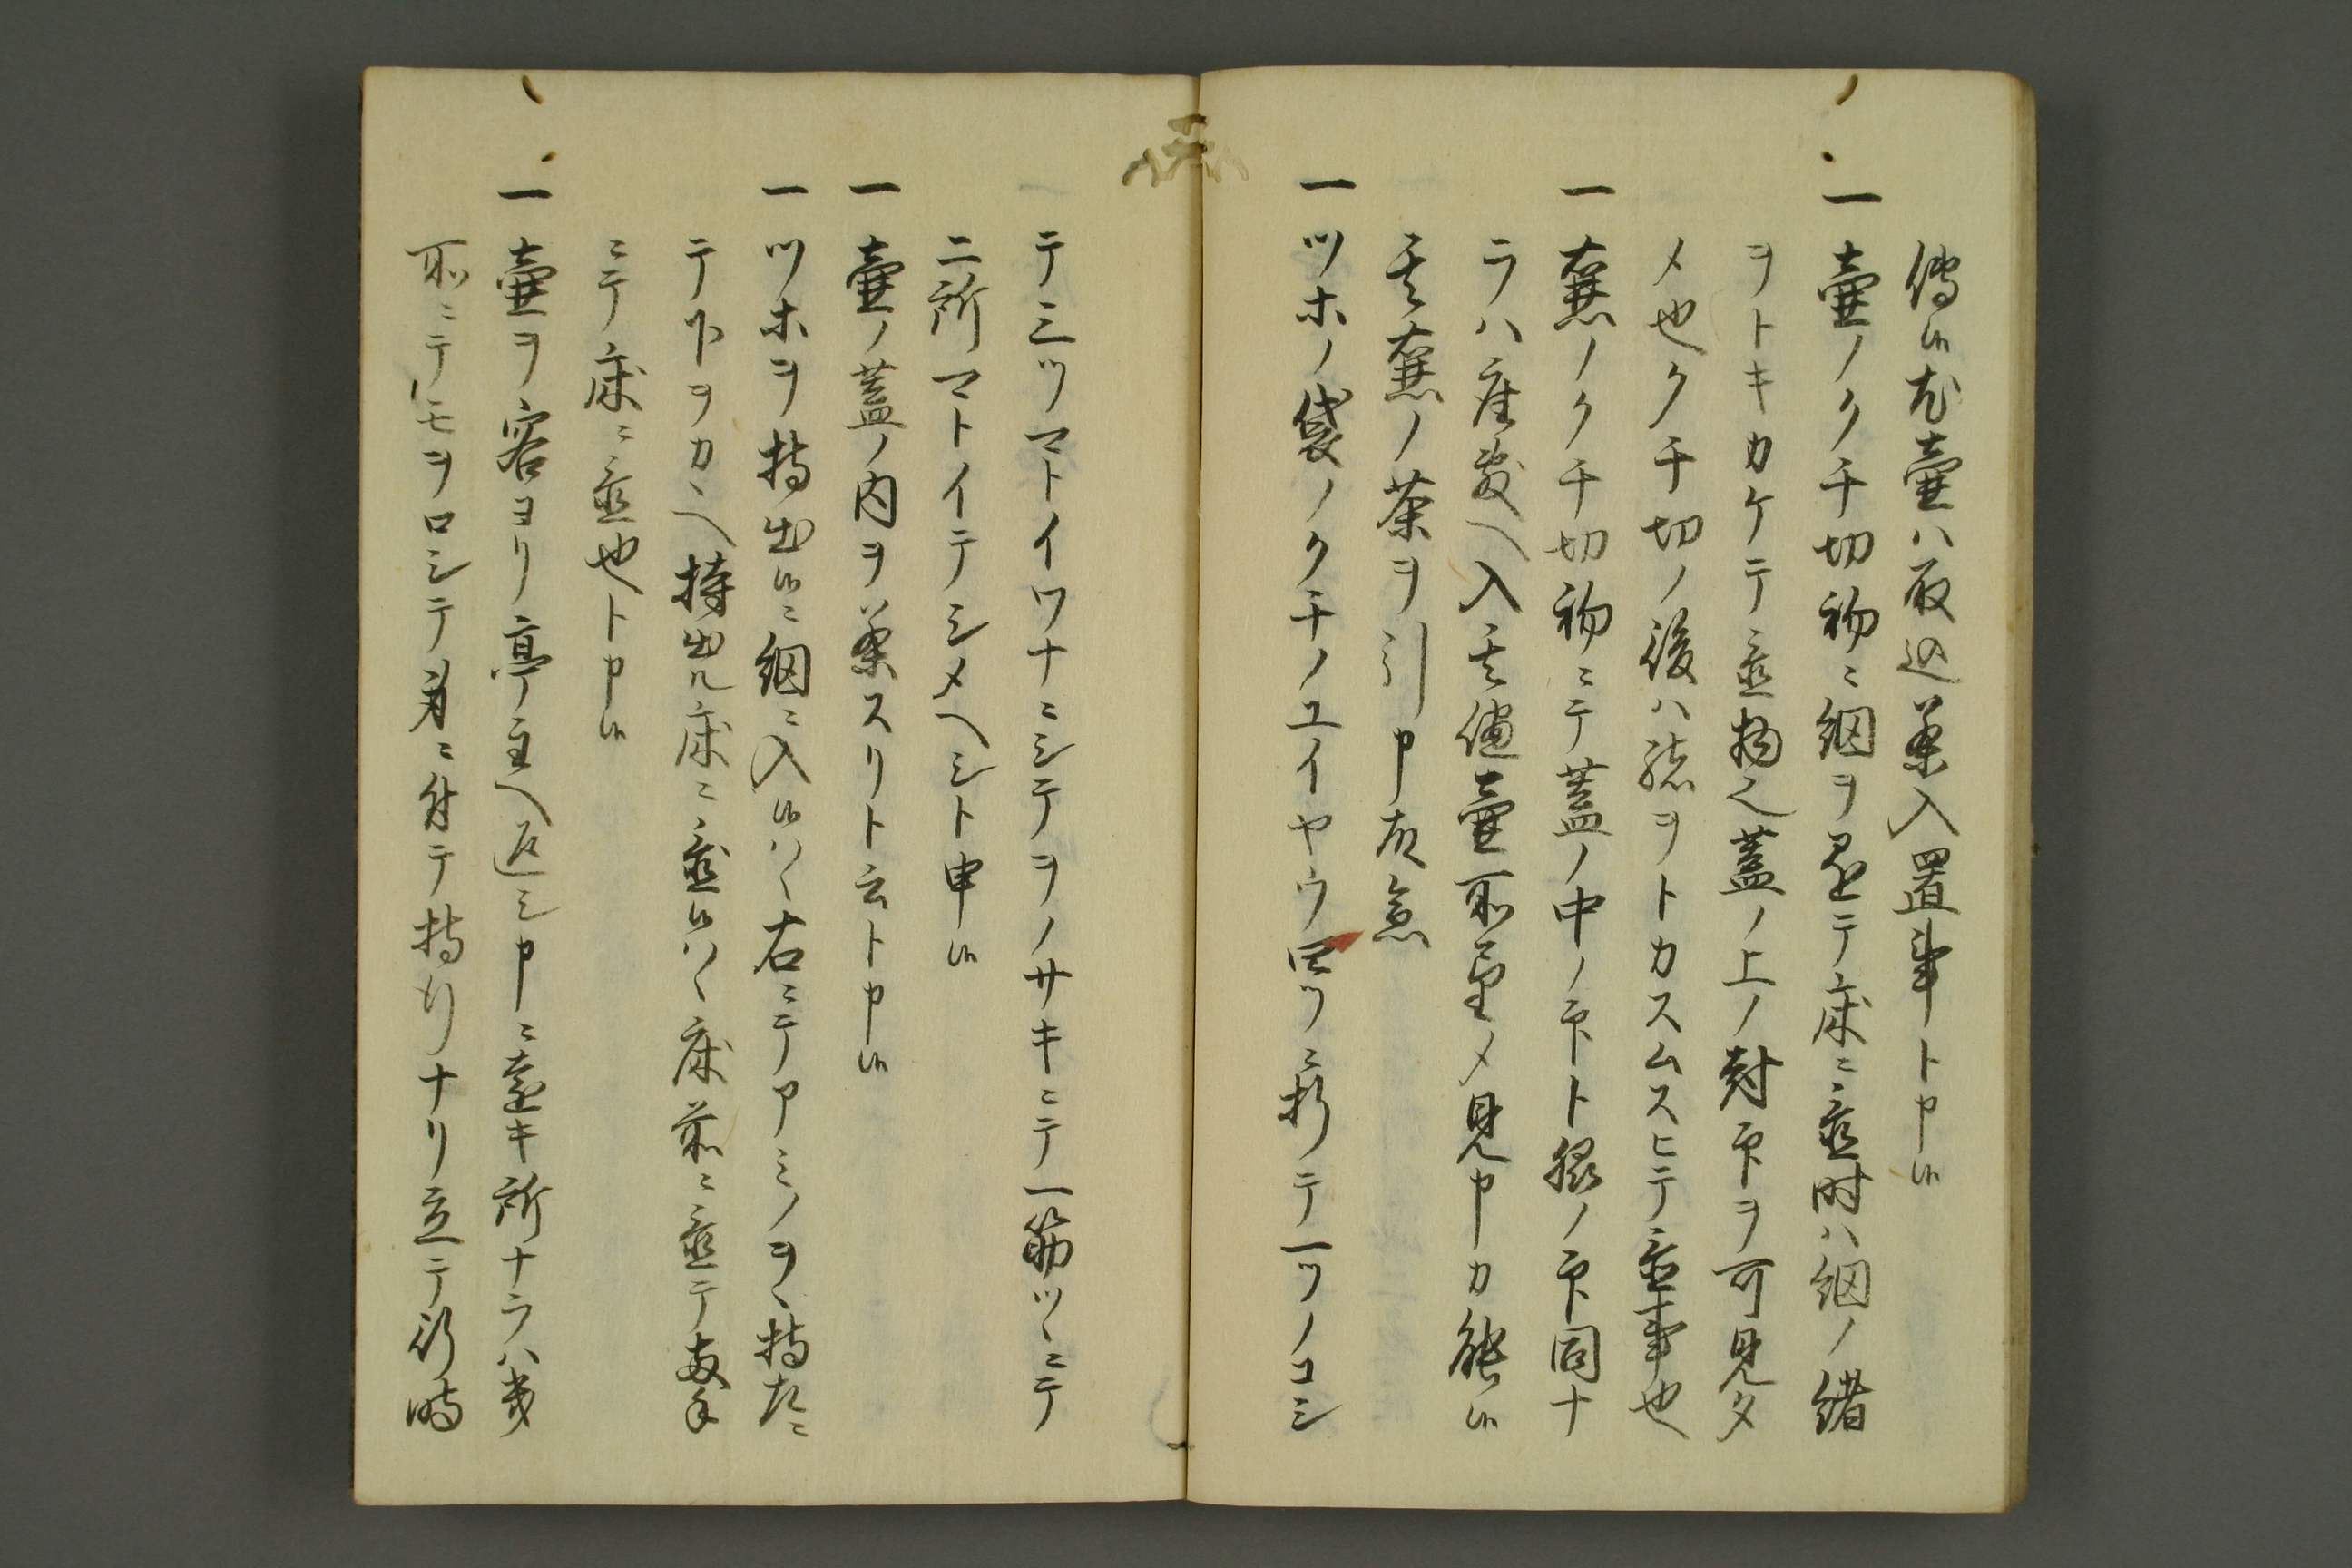 傳候尤壷ハ取込茶入置事ト申候
一 壷ノクチ切初ニ網ヲ置テ床ニ置時ハ網ノ緒
ヲトキカケテ置物也蓋ノ上ノ封印ヲ可見タ
メ也クチ切ノ後ハ緒ヲトカスムスヒテ置事也
一 壷ノクチ切初ニテ蓋ノ中ノ印ト服ノ印同ナ
ラハ座敷ヘ入其儘壷所望メ見申カ能候
其壷ノ茶ヲ引申故
一 ツホノ袋ノクチノユイヤウ四ツニ折テ一ツノコシ
テ三ツマトイワナニシテヲノサキニテ一筋ツヽニテ
二所マトイテシメヘシト申候
一 壷ノ蓋ノ内ヲ茶スリト云ト申候
一 ツホヲ持出候ニ網ニ入候ハヽ右ニテアミノヲヽ持左ニ
テ下ヲカヽヘ持出ル床ニ置候ハヽ床前ニ置テ両手
ニテ床ニ置也ト申候
一 壷ヲ客ヨリ亭主ヘ返シ申ニ遠キ所ナラハ
前ニテモヲロシテ身ニ付テ持行ナリ立テ行時